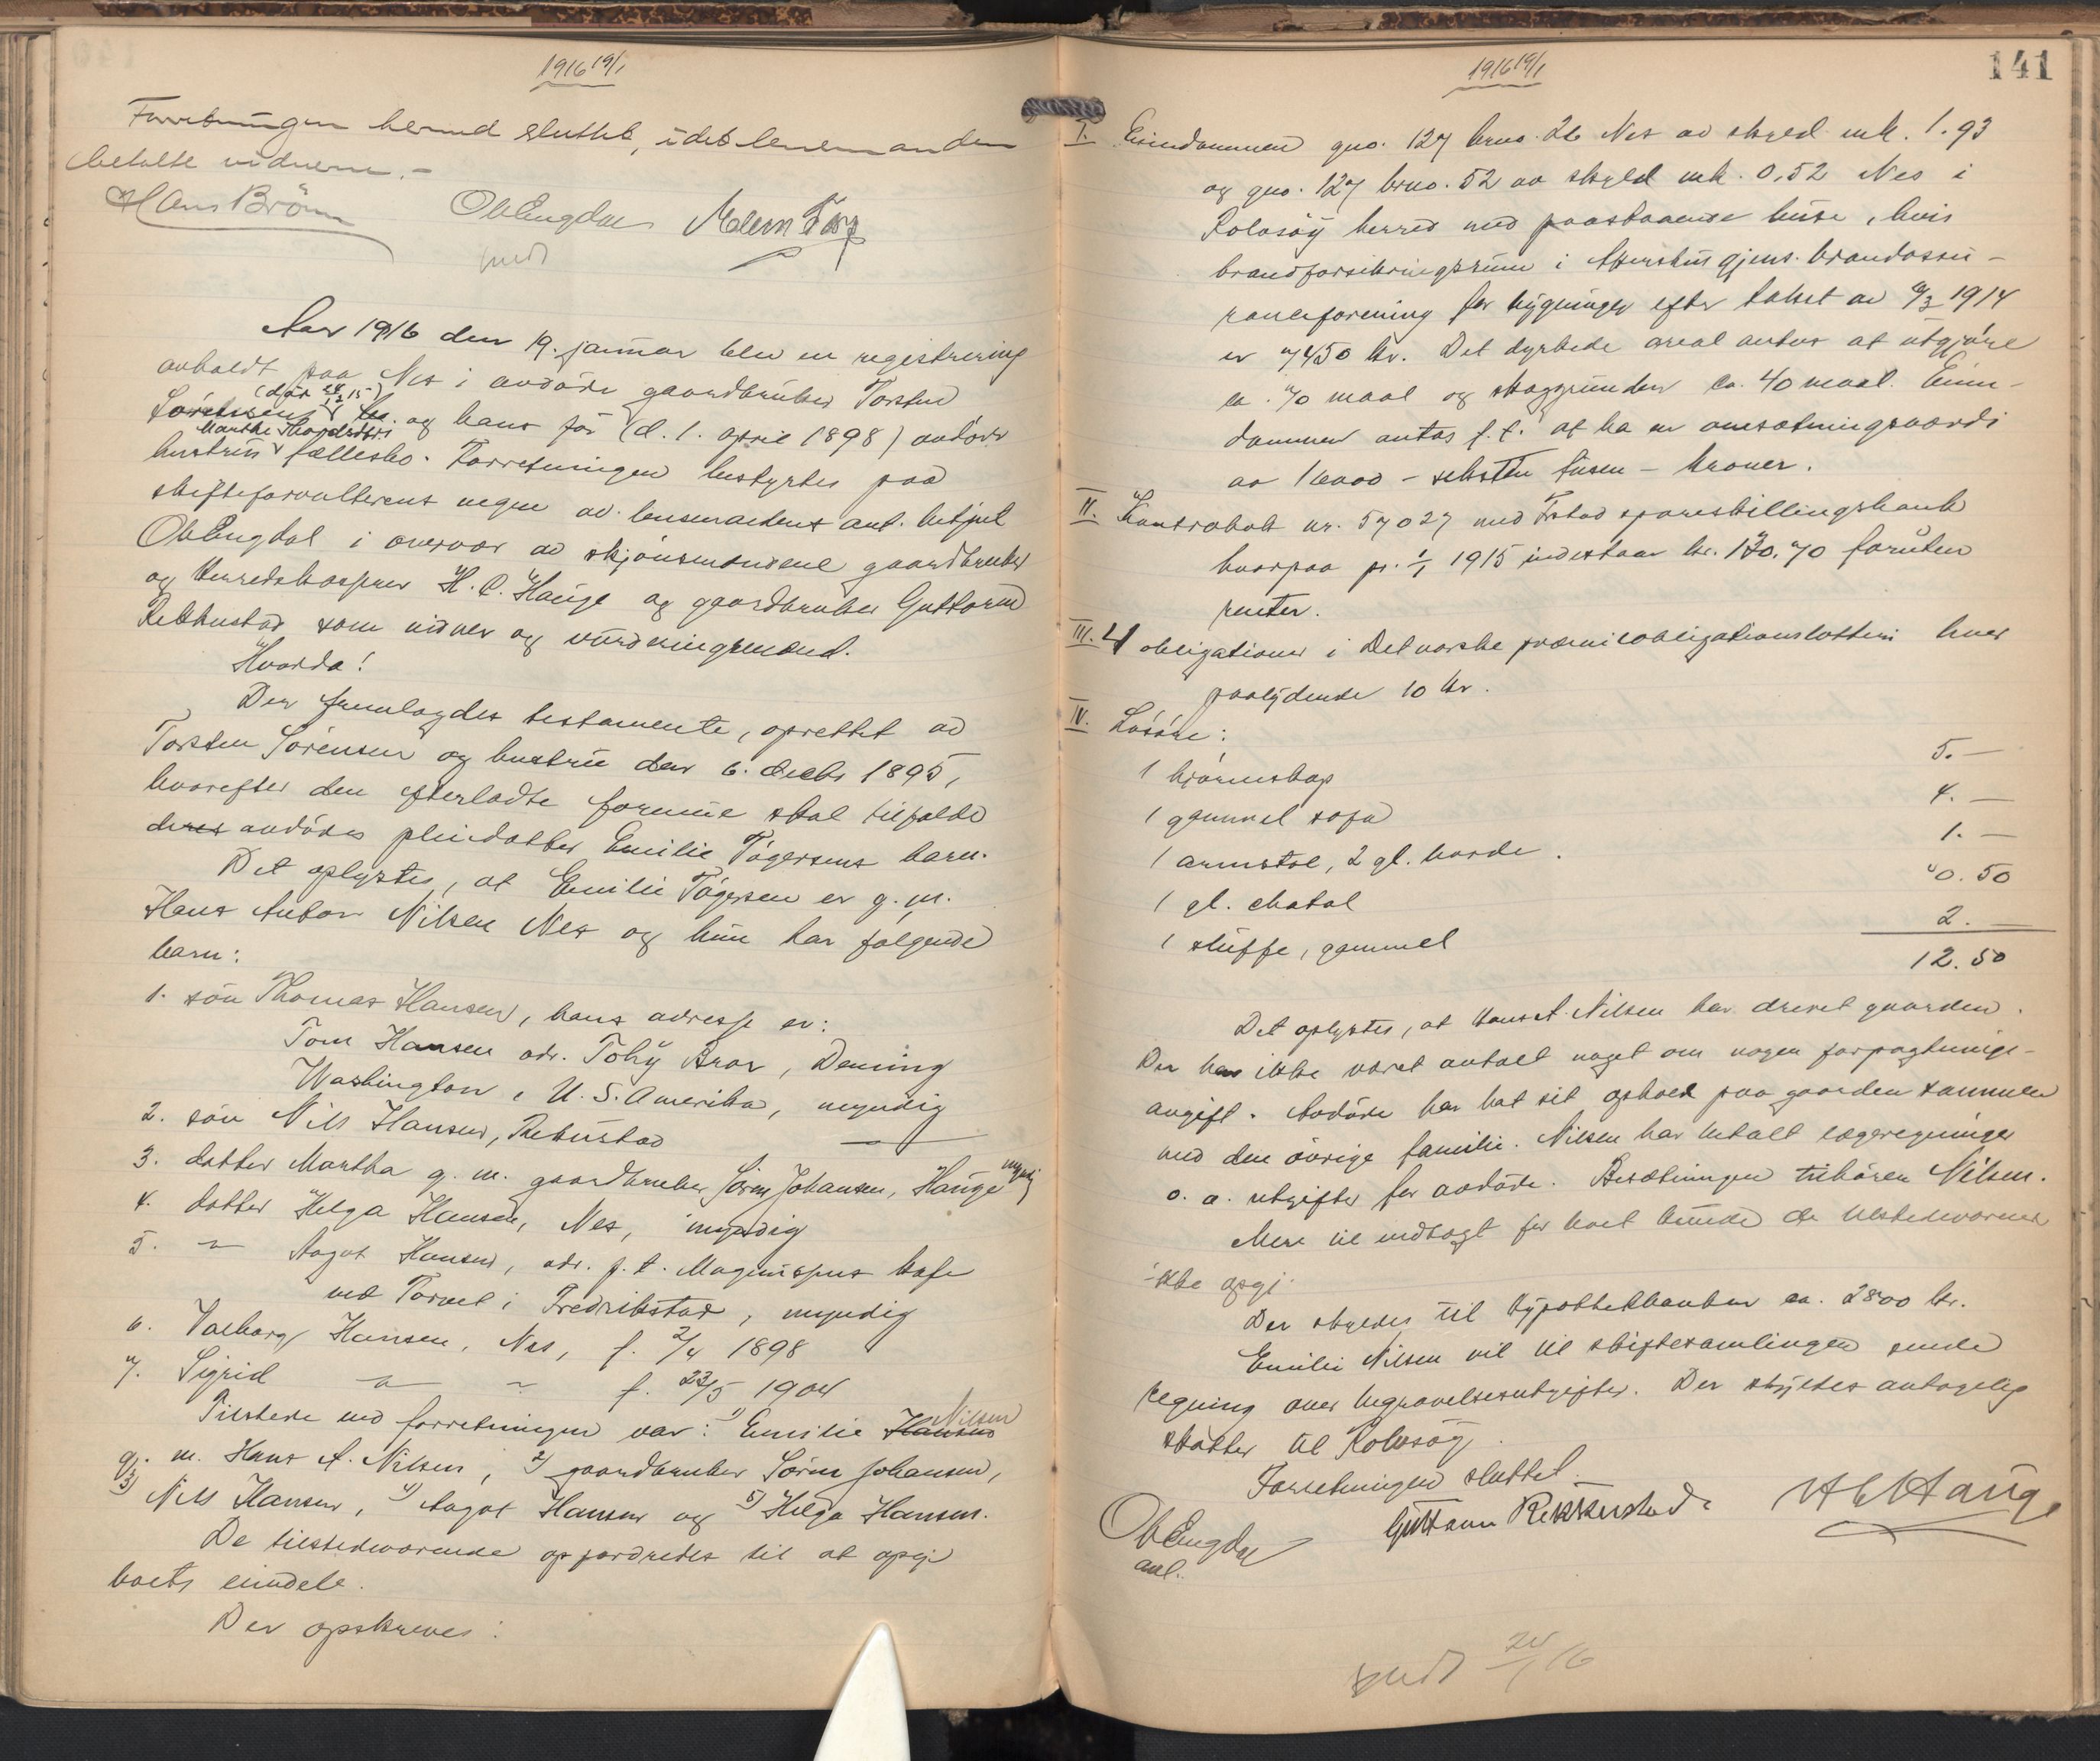 1916 19/1
Forretningen hermed sluttet, idet lensmanden
betalte vidnerne.-
Hans Brönn OlEngdal
sendt
Aar 1916 den 19. januar blev en registrering
avholdt paa Nes i avdöde gaardbruker Torsten
(död 24/12 15)
Sörensens og hans för (d. 1. april 1898) avdöde
Marthe Thordsdtrs
hustrus fællesbo. Forretningen bestyrtes paa
skifteforvalterens vegne av lensmandens aut. betjent
OlEngdal i overvær av skjönsmændene gaardbruker
og herredskasserer H. C. Hauge og gaardbruker Guttorm
Rekkustad som vidner og vurderingsmænd.
Hvorda!
Der fremlagdes testamente, oprettet av
Torsten Sörensen og hustru den 6. decbr 1895,
hvorefter den efterladte formue skal tilfalde
deres avdödes pleiedatter Emilie Tögersens barn.
Det oplystes, at Emilie Tögersen er g. m.
Hans Anton Nilsen Nes og hun har følgende
barn:
1. sön Thomas Hansen, hans adresse er:
Tom Hansen adr. Toby Bror, Deming
Washington, U. S. Amerika, myndig
2. sön Nils Hansen, Rekustad —"—
3. datter Martha g. m. gaardbruker Sören Johansen, Hauge myndig
4. datter Helga Hansen, Nes, myndig
5. —"— Aagot Hansen, adr. p. t. Magnussens kafe
ved Torvet i Fredrikstad, myndig
6. Valborg Hansen, Nes, f. 2/4 1898
7. Sigrid —"— " f. 23/5 1904
Tilstede ved forretningen var: 1) Emilie Hansen Nilsen
g. m. Hans A. Nilsen, 2) gaardbruker Sören Johansen,
3) Nils Hansen, 4) Aagot Hansen og 5) Helga Hansen.
De tilstedeværende opfordredes til at opgi
boets eiendele.
Der opskreves:
1916 19/1
141
I. Eiendommen gno. 127 brno. 26 Nes av skyld mk. 1.93
og gno. 127 brno. 52 av skyld mk. 0,52 Nes i
Rolvsöy herred med paastaaende huse, hvis
brandforsikringssum i Akershus gjens. brandassu-
ranceforening for bygninger efter takst av 9/3 1914
er 7450 kr. Det dyrkede areal antas at utgjöre
ca. 70 maal og skoggrunden ca. 40 maal. Eien-
dommen antas f. t. at ha en omsætningsværdi
av 16000 - seksten tusen - kroner.
II. Kontrabok nr. 57027 med F.stad spareskillingsbank
hvorpaa pr. 1/1 1915 indestaar kr. 170.70 foruten
renter.
III. 4 obligationer i Det norske præmieobligationslotteri hver
paalydende 10 kr.
IV. Lösöre:
1 hjörneskap 5.—
1 gammel sofa 4.—
1 armstol, 2 gl. borde. 1.—
1 gl. chatol "0.50
1 sluffe, gammel 2.—
12.50
Det oplystes, at Hans A. Nilsen har drevet gaarden.
Der har ikke været avtalt noget om nogen forpagtnings-
avgift. Avdöde har hat sit ophold paa gaarden sammen
med den övrige familie. Nilsen har betalt lægeregninger
o. a. utgifter for avdöde. Besætningen tilhörer Nilsen.
Mere til indtægt for boet kunde de tilstedeværende
ikke opgi.
Der skyldes til Hypothekbanken ca. 2800 kr.
Emilie Nilsen vil til skiftesamlingen sende
regning over begravelsesutgifter. Der skyldes antagelig
skatter til Rolvsöy.
Forretningen sluttet.
OlEngdal Guttorm Rekkustad HCHauge
aut.
sendt 24/1 16